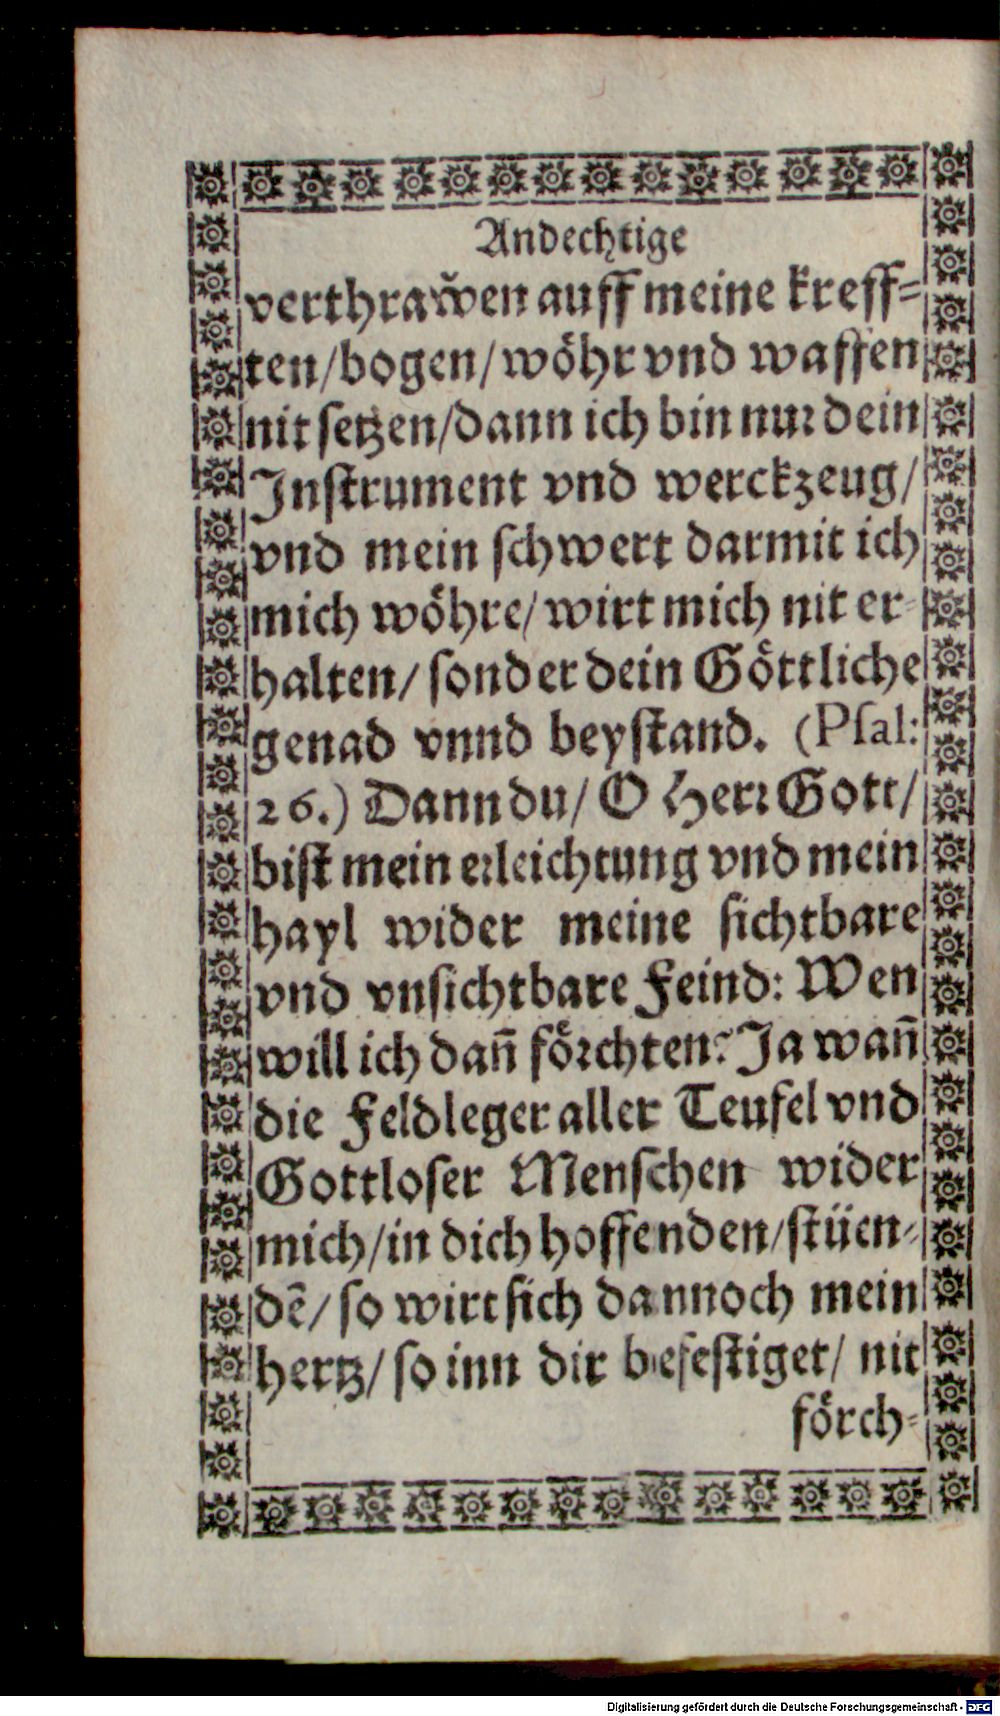 Andechtige
verthraw̌en auff meine kreff=
ten/bogen/wöhr vnd waffen
nit setzen/dann ich bin nur dein
Instrument vnd werckzeug/
vnd mein schwert darmit ich
mich wöhre/wirt mich nit er=
halten/sonder dein Göttliche
genad vnnd beystand. (Psal:
26.) Dann du/O Herr Gott/
bist mein erleichtung vnd mein
hayl wider meine sichtbare
vnd vnsichtbare Feind: Wen
will ich dañ förchten? Ja wañ
die Feldleger aller Teufel vnd
Gottloser Menschen wider
mich/in dich hoffenden/stüen=
dē/so wirt sich dannoch mein
hertz/so inn dir befestiget/nit
förch=
Digitalisierung gefördert durch die Deutsche Forschungsgemeinschaft - DFG